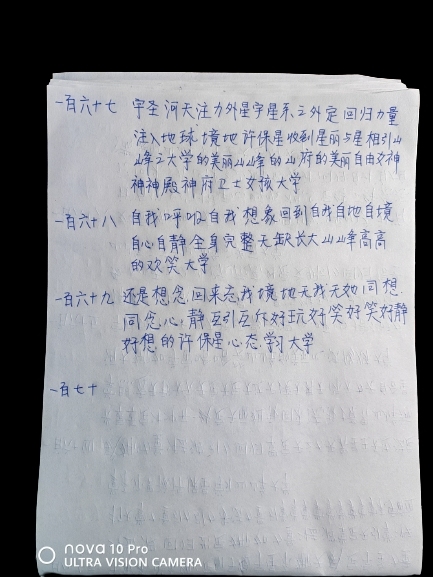 一百六十七 宇圣河天注力外星宇星系之外定回归力量
注入地球境地许保星收到星丽与星相引山
山峰之大学的美丽山山峰的山府的美丽自由女神
神神殿神府卫士女孩大学
一百六十八 自我呼吸自我想象回到自我自地自境
自心自静全身完整无缺长大山山峰高高
的欢笑大学
一百六十九 还是想念回来忘我境地无我无她同想
同念心静互引互作好玩好笑好笑好静
好想的许保星心态学习大学
一百七十
nova 10 Pro
ULTRA VISION CAMERA